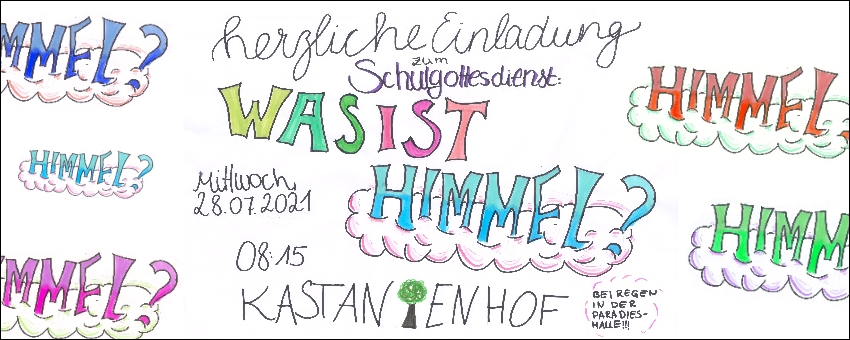 herzliche Einladung
zum
Schulgottesdienst:
WAS IST
HIMMEL?
Mittwoch,
28.07.2021
08:15
KASTANIENHOF
BEI REGEN
IN DER
PARADIES-
HALLE!!!
MMEL?
HIMMEL?
MMEL?
HIMMEL
HIMM